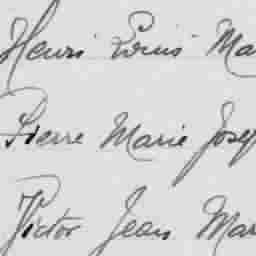 Henri Louis Ma
Pierre Marie Josep
Victor Jean Mar